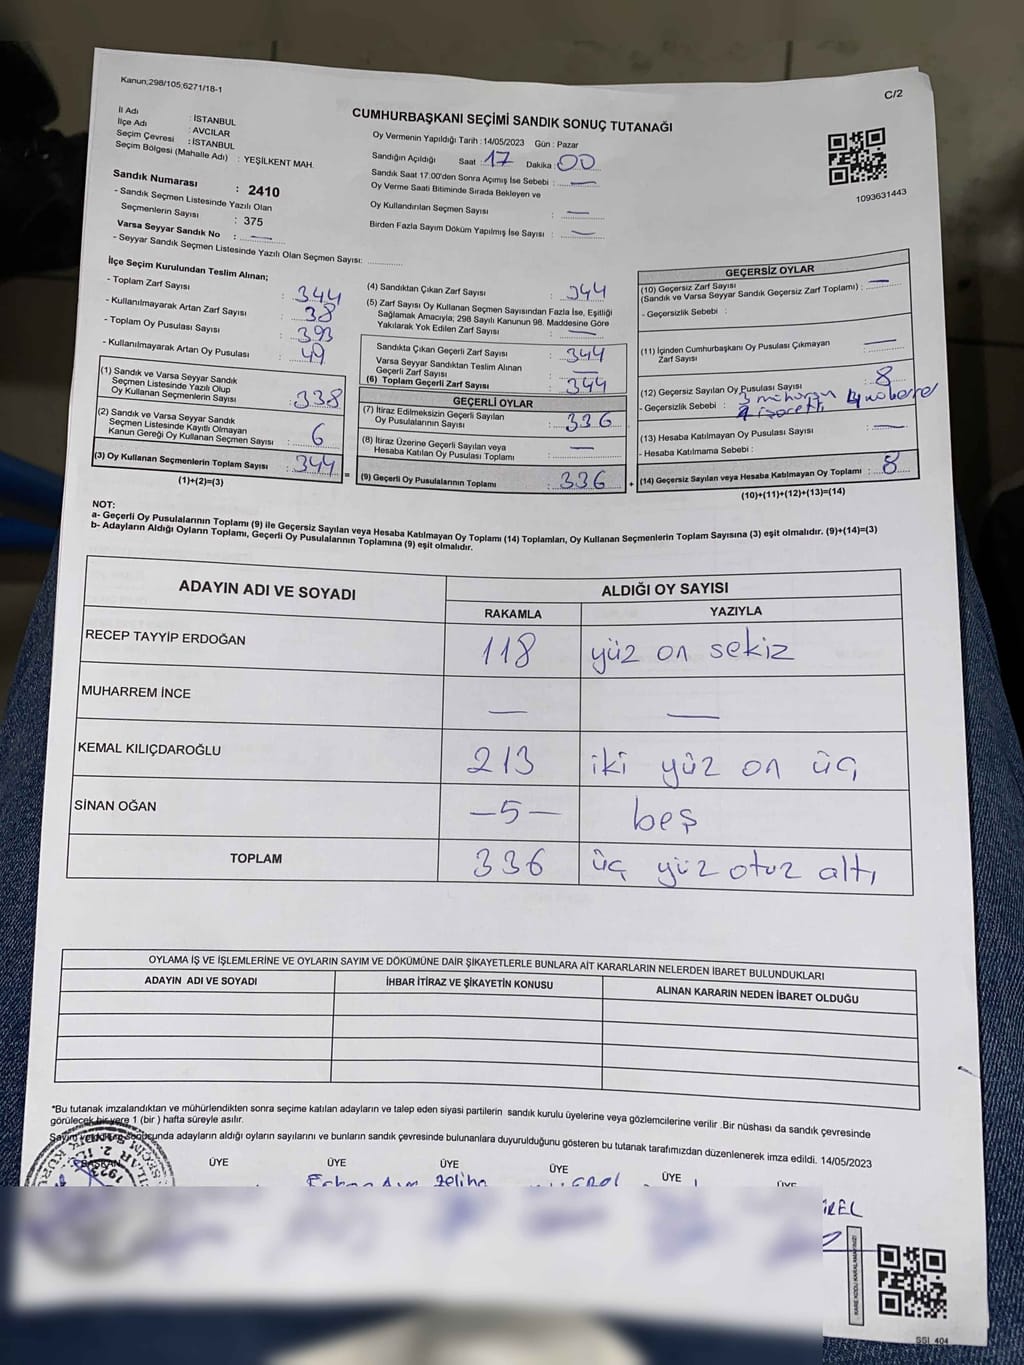 Kanun;298/105;6271/18-1
C/2
İl Adı : İSTANBUL
İlçe Adı : AVCILAR
Seçim Çevresi : İSTANBUL
Seçim Bölgesi (Mahalle Adı) : YEŞİLKENT MAH.
Sandık Numarası : 2410
- Sandık Seçmen Listesinde Yazılı Olan
Seçmenlerin Sayısı : 375
Varsa Seyyar Sandık No : —
- Seyyar Sandık Seçmen Listesinde Yazılı Olan Seçmen Sayısı: ............
CUMHURBAŞKANI SEÇİMİ SANDIK SONUÇ TUTANAĞI
Oy Vermenin Yapıldığı Tarih : 14/05/2023 Gün : Pazar
Sandığın Açıldığı Saat : 17 Dakika : 00
Sandık Saat 17:00'den Sonra Açımış İse Sebebi : —
Oy Verme Saati Bitiminde Sırada Bekleyen ve
Oy Kullandırılan Seçmen Sayısı : —
Birden Fazla Sayım Döküm Yapılmış İse Sayısı : —
1093631443
İlçe Seçim Kurulundan Teslim Alınan;
- Toplam Zarf Sayısı : 344
- Kullanılmayarak Artan Zarf Sayısı : 38
- Toplam Oy Pusulası Sayısı : 393
- Kullanılmayarak Artan Oy Pusulası : 49
(1) Sandık ve Varsa Seyyar Sandık
Seçmen Listesinde Yazılı Olup
Oy Kullanan Seçmenlerin Sayısı : 338
(2) Sandık ve Varsa Seyyar Sandık
Seçmen Listesinde Kayıtlı Olmayan
Kanun Gereği Oy Kullanan Seçmen Sayısı : 6
(3) Oy Kullanan Seçmenlerin Toplam Sayısı : 344
(1)+(2)=(3)
(4) Sandıktan Çıkan Zarf Sayısı : 344
(5) Zarf Sayısı Oy Kullanan Seçmen Sayısından Fazla İse, Eşitliği
Sağlamak Amacıyla; 298 Sayılı Kanunun 98. Maddesine Göre
Yakılarak Yok Edilen Zarf Sayısı : —
Sandıkta Çıkan Geçerli Zarf Sayısı : 344
Varsa Seyyar Sandıktan Teslim Alınan
Geçerli Zarf Sayısı : —
(6) Toplam Geçerli Zarf Sayısı : 344
GEÇERLİ OYLAR
(7) İtiraz Edilmeksizin Geçerli Sayılan
Oy Pusulalarının Sayısı : 336
(8) İtiraz Üzerine Geçerli Sayılan veya
Hesaba Katılan Oy Pusulası Toplamı : —
(9) Geçerli Oy Pusulalarının Toplamı : 336
GEÇERSİZ OYLAR
(10) Geçersiz Zarf Sayısı
(Sandık ve Varsa Seyyar Sandık Geçersiz Zarf Toplamı) : —
- Geçersizlik Sebebi :
(11) İçinden Cumhurbaşkanı Oy Pusulası Çıkmayan
Zarf Sayısı : —
(12) Geçersiz Sayılan Oy Pusulası Sayısı : 8
- Geçersizlik Sebebi :
(13) Hesaba Katılmayan Oy Pusulası Sayısı : —
- Hesaba Katılmama Sebebi :
(14) Geçersiz Sayılan veya Hesaba Katılmayan Oy Toplamı : 8
(10)+(11)+(12)+(13)=(14)
NOT:
a- Geçerli Oy Pusulalarının Toplamı (9) ile Geçersiz Sayılan veya Hesaba Katılmayan Oy Toplamı (14) Toplamları, Oy Kullanan Seçmenlerin Toplam Sayısına (3) eşit olmalıdır. (9)+(14)=(3)
b- Adayların Aldığı Oyların Toplamı, Geçerli Oy Pusulalarının Toplamına (9) eşit olmalıdır.
ADAYIN ADI VE SOYADI ALDIĞI OY SAYISI
RAKAMLA YAZIYLA
RECEP TAYYİP ERDOĞAN 118 yüz on sekiz
MUHARREM İNCE — —
KEMAL KILIÇDAROĞLU 213 iki yüz on üç
SİNAN OĞAN -5- beş
TOPLAM 336 üç yüz otuz altı
OYLAMA İŞ VE İŞLEMLERİNE VE OYLARIN SAYIM VE DÖKÜMÜNE DAİR ŞİKAYETLERLE BUNLARA AİT KARARLARIN NELERDEN İBARET BULUNDUKLARI
ADAYIN ADI VE SOYADI İHBAR İTİRAZ VE ŞİKAYETİN KONUSU ALINAN KARARIN NEDEN İBARET OLDUĞU
*Bu tutanak imzalandıktan ve mühürlendikten sonra seçime katılan adayların ve talep eden siyasi partilerin sandık kurulu üyelerine veya gözlemcilerine verilir .Bir nüshası da sandık çevresinde
görülecek bir yere 1 (bir ) hafta süreyle asılır.
Sayım ve döküm sonucunda adayların aldığı oyların sayılarını ve bunların sandık çevresinde bulunanlara duyurulduğunu gösteren bu tutanak tarafımızdan düzenlenerek imza edildi. 14/05/2023
BAŞKAN ÜYE ÜYE ÜYE ÜYE ÜYE ÜYE
Zeliha